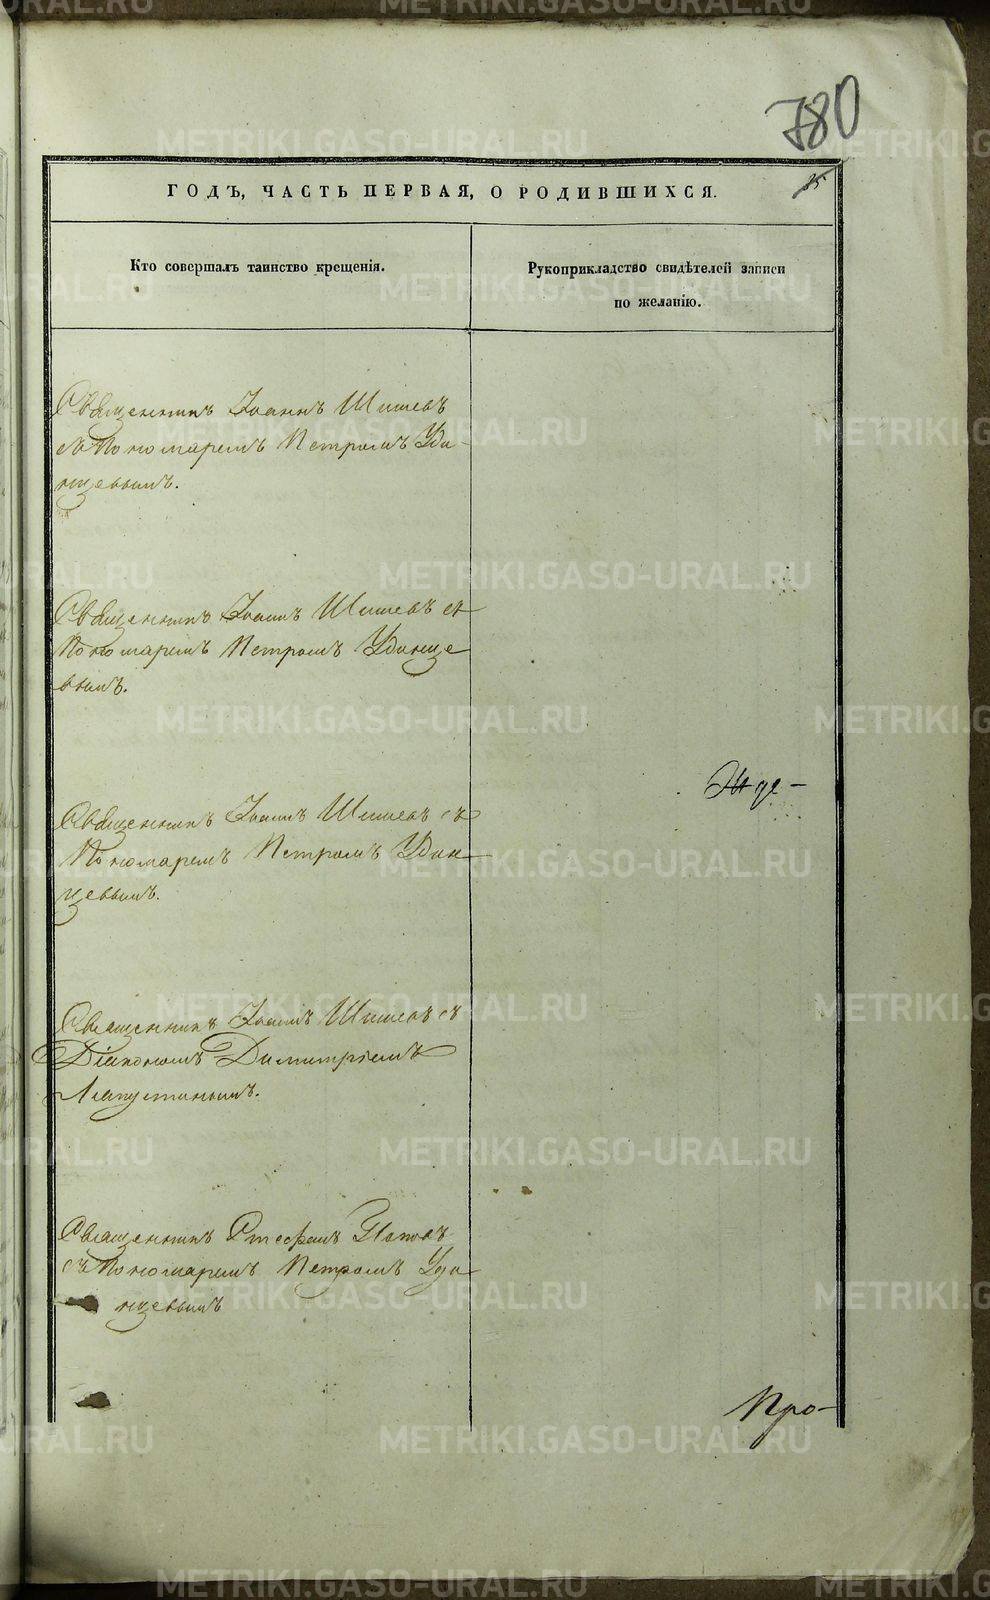 780
35
ГОДЪ, ЧАСТЬ ПЕРВАЯ, О РОДИВШИХСЯ.
Кто совершалъ таинство крещенія.
Рукоприкладство свидѣтелей записи
по желанію.
Священникъ Іоаннъ Шишевъ
съ Пономаремъ Петромъ Уди-
нцевымъ.
Священникъ Іоаннъ Шишевъ съ
Пономаремъ Петромъ Удинце
вымъ.
Священникъ Іоаннъ Шишевъ съ
Пономаремъ Петромъ Удин
цевымъ.
Священникъ Іоаннъ Шишевъ съ
Діакономъ Димитріемъ
Лапустинымъ.
Священникъ Стефанъ Поповъ
съ Пономаремъ Петромъ Уди
нцевымъ
Про-
METRIKI.GASO-URAL.RU